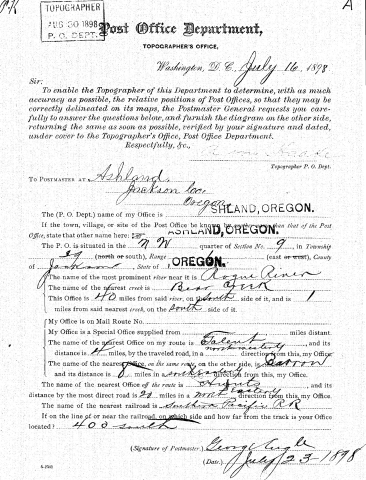 TOPOGRAPHER
AUG 30 1898
P. O. DEPT.
Post Office Department,
TOPOGRAPHER'S OFFICE,
Washington, D. C., July 16, 1898
Sir:
To enable the Topographer of this Department to determine, with as much
accuracy as possible, the relative positions of Post Offices, so that they may be
correctly delineated on its maps, the Postmaster General requests you care-
fully to answer the questions below, and furnish the diagram on the other side,
returning the same as soon as possible, verified by your signature and dated,
under cover to the Topographer's Office, Post Office Department.
Respectfully, &c.,
Topographer P. O. Dept.
TO POSTMASTER AT Ashland,
Jackson Co.,
Oregon
The (P. O. Dept.) name of my Office is SHLAND, OREGON.
If the town, village, or site of the Post Office be known by another name than that of the Post
Office, state that other name here: ASHLAND, OREGON.
The P. O. is situated in the N W quarter of Section No. 9, in Township
39 (north or south), Range 1 (east or west), County
of Jackson, State of OREGON.
The name of the most prominent river near it is Rogue River
The name of the nearest creek is Bear Creek
This Office is 40 miles from said river, on the south side of it, and is 1
miles from said nearest creek, on the south side of it.
My Office is on Mail Route No.
My Office is a Special Office supplied from miles distant.
The name of the nearest Office on my route is Talent, and its
distance is 4 miles, by the traveled road, in a northwesterly direction from this, my Office.
The name of the nearest Office, on the same route, on the other side, is Barron
and its distance is 8 miles in a direction from this, my Office.
The name of the nearest Office off the route is, and its
distance by the most direct road is 20 miles in a direction from this, my Office.
The name of the nearest railroad is Southern Pacific RR
If on the line of or near the railroad, on which side and how far from the track is your Office
located? 400 south
(Signature of Postmaster) George Engle
(Date.) July 23-1898